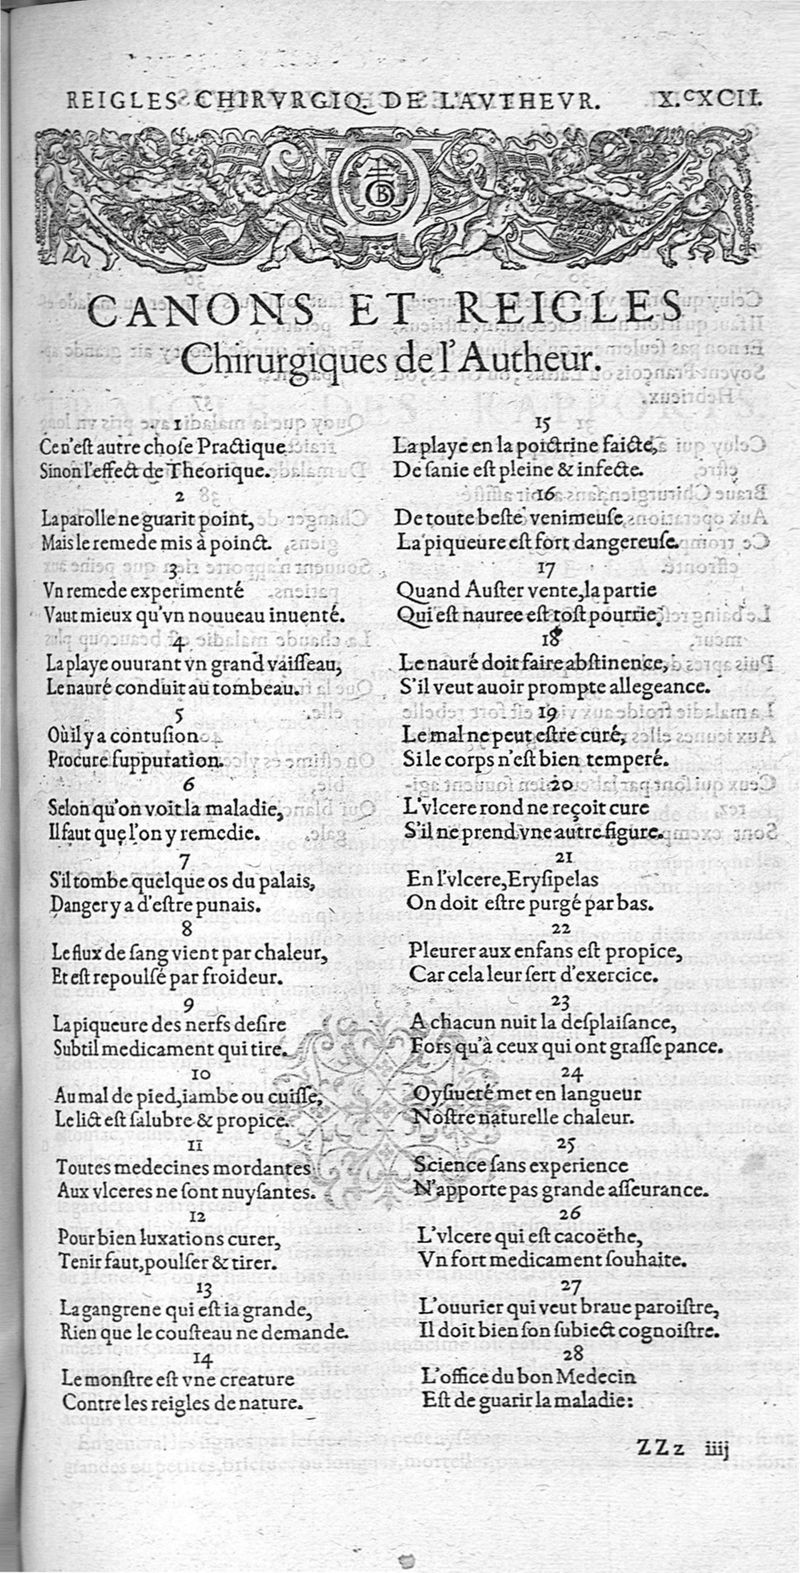 REIGLES CHIRVRGIQ. DE L'AVTHEVR. X.ᶜXCII.
CANONS ET REIGLES
Chirurgiques de l'Autheur.
1
Ce n'eſt autre choſe Practique
Sinon l'effect de Theorique.
2
La parolle ne guarit point,
Mais le remede mis à poinct.
3
Vn remede experimenté
Vaut mieux qu'vn nouueau inuenté.
4
La playe ouurant vn grand vaiſſeau,
Le nauré conduit au tombeau.
5
Où il y a contuſion
Procure ſuppuration.
6
Selon qu'on voit la maladie,
Il faut que l'on y remedie.
7
S'il tombe quelque os du palais,
Danger y a d'eſtre punais.
8
Le flux de ſang vient par chaleur,
Et eſt repoulſé par froideur.
9
La piqueure des nerfs deſire
Subtil medicament qui tire.
10
Au mal de pied, iambe ou cuiſſe,
Le lict eſt ſalubre & propice.
11
Toutes medecines mordantes
Aux vlceres ne ſont nuyſantes.
12
Pour bien luxations curer,
Tenir faut, poulſer & tirer.
13
La gangrene qui eſt ia grande,
Rien que le couſteau ne demande.
14
Le monſtre eſt vne creature
Contre les reigles de nature.
15
La playe en la poictrine faicte,
De ſanie eſt pleine & infecte.
16
De toute beſte venimeuſe
La piqueure eſt fort dangereuſe.
17
Quand Auſter vente, la partie
Qui eſt nauree eſt toſt pourrie.
18
Le nauré doit faire abſtinence,
S'il veut auoir prompte allegeance.
19
Le mal ne peut eſtre curé,
Si le corps n'eſt bien temperé.
20
L'vlcere rond ne reçoit cure
S'il ne prend vne autre figure.
21
En l'vlcere, Eryſipelas
On doit eſtre purgé par bas.
22
Pleurer aux enfans eſt propice,
Car cela leur ſert d'exercice.
23
A chacun nuit la deſplaiſance,
Fors qu'à ceux qui ont graſſe pance.
24
Oyſiueté met en langueur
Noſtre naturelle chaleur.
25
Science ſans experience
N'apporte pas grande aſſeurance.
26
L'vlcere qui eſt cacoëthe,
Vn fort medicament ſouhaite.
27
L'ouurier qui veut braue paroiſtre,
Il doit bien ſon ſubiect cognoiſtre.
28
L'office du bon Medecin
Eſt de guarir la maladie:
ZZz iiij